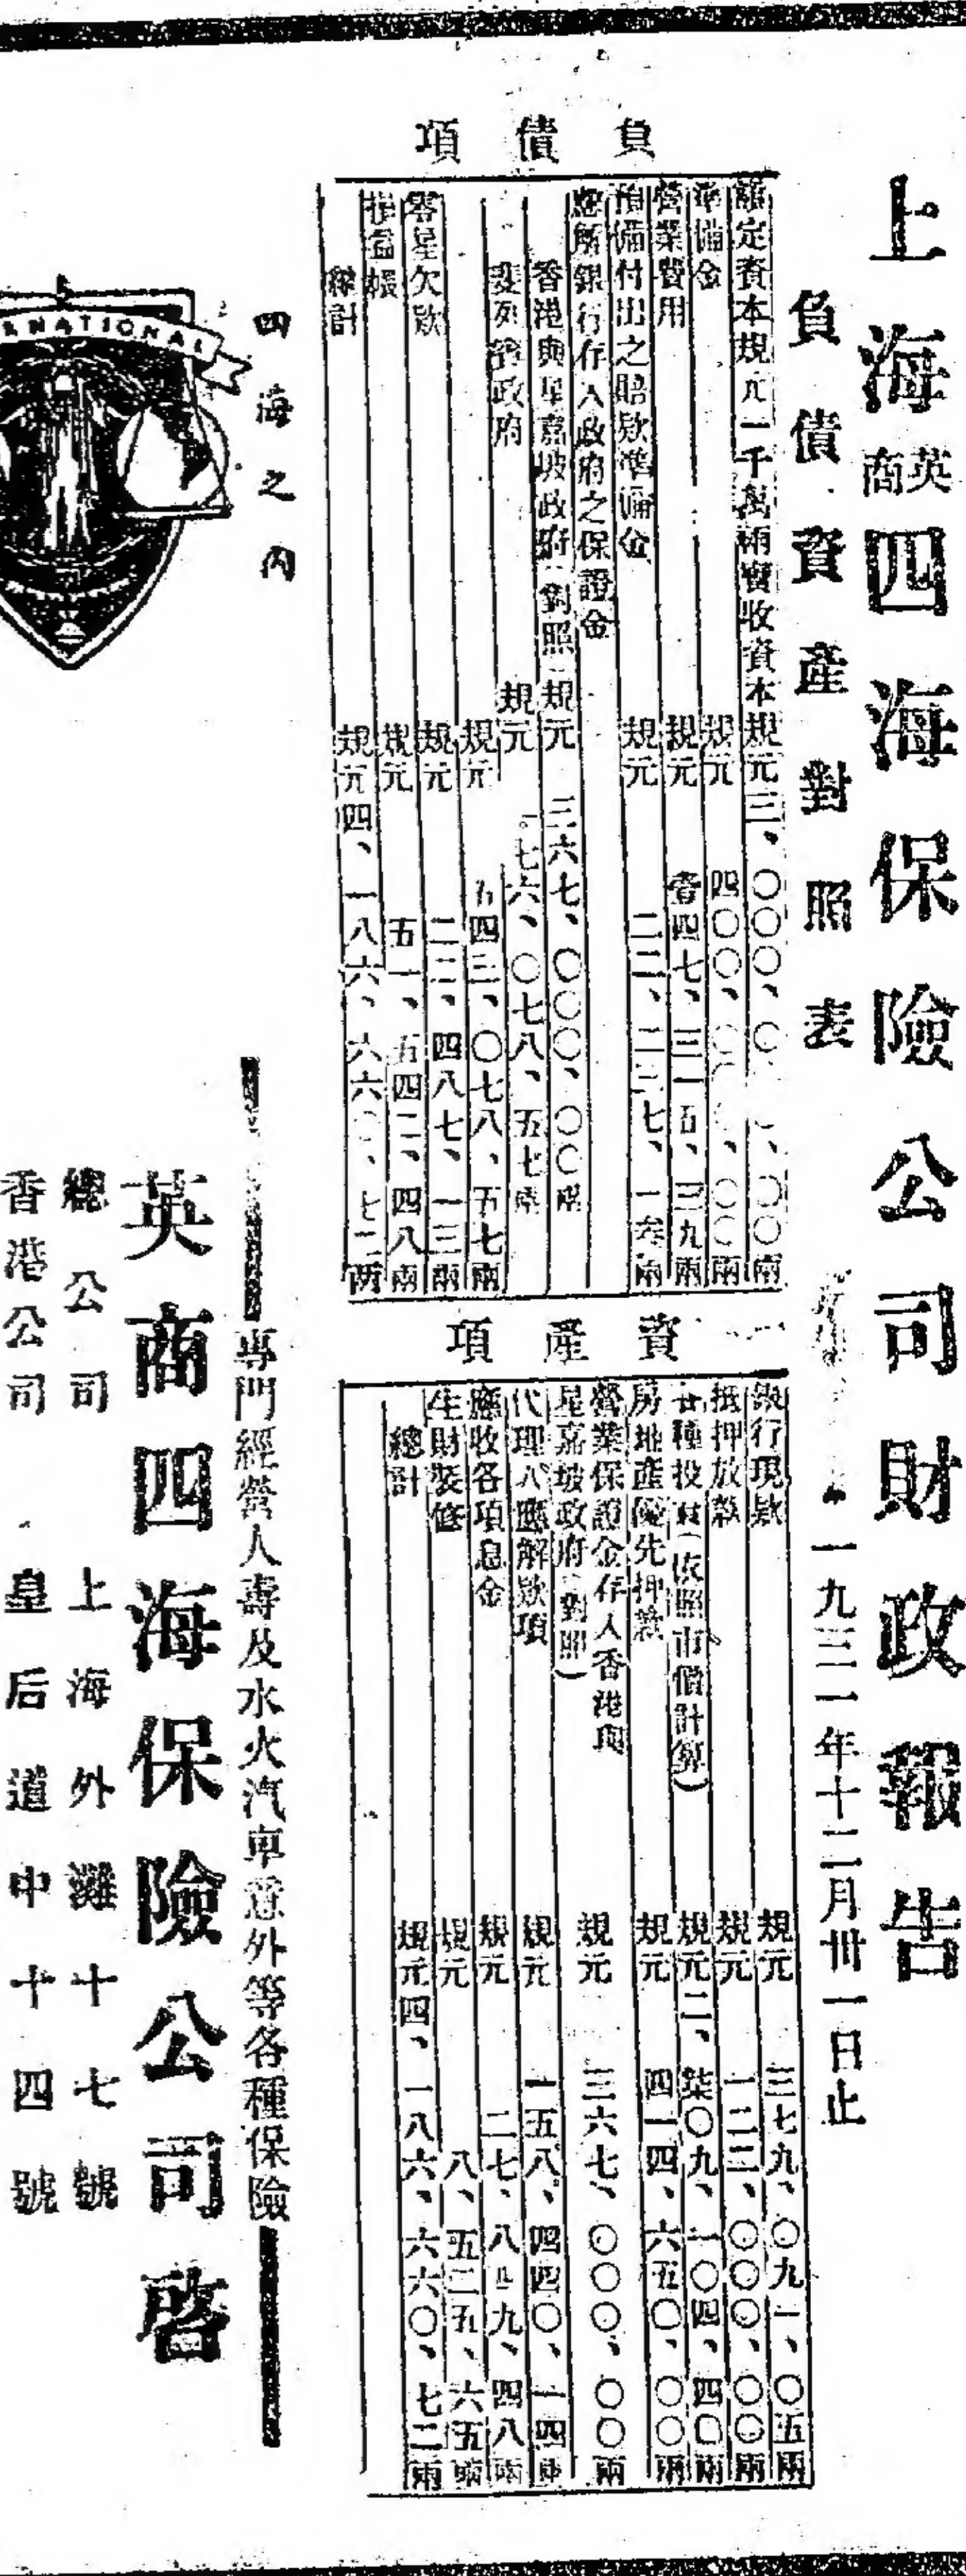 上海英商四海保險公司財政報告
負債資產對照表
一九三一年十二月卅一日止
負債項
額定資本規元一千萬兩實收資本規元三、〇〇〇、〇、〇〇兩
準備金 規元 四〇〇、、〇〇兩
營業費用 規元 壹四七、三一五、三九兩
預備付出之賠欵準備金 規元 二二、二三七、一叁兩
應解銀行存入政府之保證金
香港與星嘉坡政府(對照) 規元 三六七、〇〇〇、〇〇兩
斐列濱政府 規元 一七六、〇七八、五七兩
規元 五四三、〇七八、五七兩
零星欠欵 規元 二二、四八七、一三兩
損益帳 規元 五一、五四二、四八兩
總計 規元四、一八六、六六〇、七二兩
資產項
銀行現欵 規元 三七九、〇九一、〇五兩
抵押放欵 規元 一二二、〇〇〇、〇〇兩
各種投資(依照市價計算) 規元二、柒〇九、一〇四、四〇兩
房地產優先押欵 規元 四一四、六五〇、〇〇兩
營業保證金存入香港與
星嘉坡政府(對照) 規元 三六七、〇〇〇、〇〇兩
代理人應解欵項 規元 一五八、四四〇、一四兩
應收各項息金 規元 二七、八四九、四八兩
生財裝修 規元 八、五二五、六五兩
總計 規元四、一八六、六六〇、七二兩
四海之內
NATIONAL
專門經營人壽及水火汽車意外等各種保險
英商四海保險公司啓
總公司 上海外灘十七號
香港公司 皇后道中十四號